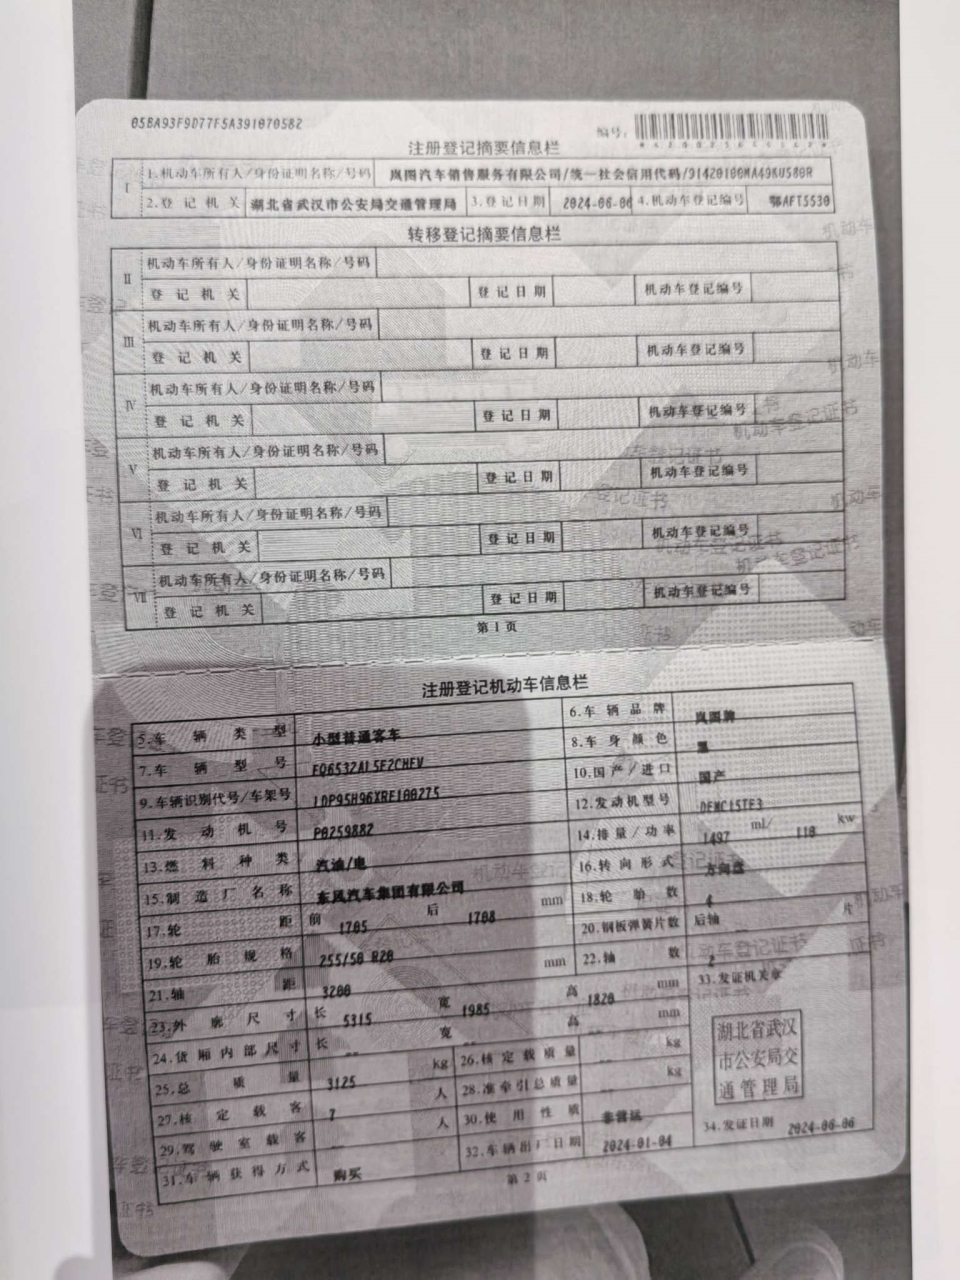 05BA93F9D77F5A391070582
编号:
注册登记摘要信息栏
I 1.机动车所有人/身份证明名称/号码 岚图汽车销售服务有限公司/统一社会信用代码/91420100MA49KU580R
2.登记机关 湖北省武汉市公安局交通管理局 3.登记日期 2024-06-06 4.机动车登记编号 鄂AFT5530
转移登记摘要信息栏
II 机动车所有人/身份证明名称/号码
登记机关 登记日期 机动车登记编号
III 机动车所有人/身份证明名称/号码
登记机关 登记日期 机动车登记编号
IV 机动车所有人/身份证明名称/号码
登记机关 登记日期 机动车登记编号
V 机动车所有人/身份证明名称/号码
登记机关 登记日期 机动车登记编号
VI 机动车所有人/身份证明名称/号码
登记机关 登记日期 机动车登记编号
VII 机动车所有人/身份证明名称/号码
登记机关 登记日期 机动车登记编号
第1页
注册登记机动车信息栏
5.车辆类型 小型普通客车 6.车辆品牌 岚图牌
7.车辆型号 EQ6532AL5E2CHEV 8.车身颜色 黑
9.车辆识别代号/车架号 LDP95H96XRE100275 10.国产/进口 国产
11.发动机号 P0259882 12.发动机型号 DFMC15TE3
13.燃料种类 汽油/电 14.排量/功率 1497 ml/ 110 kw
15.制造厂名称 东风汽车集团有限公司 16.转向形式 方向盘
17.轮距 前 1705 后 1708 mm 18.轮胎数 4
19.轮胎规格 255/50 R20 20.钢板弹簧片数 后轴 片
21.轴距 3200 mm 22.轴数 2
23.外廓尺寸 长 5315 宽 1985 高 1820 mm 33.发证机关章
24.货厢内部尺寸 长 -- 宽 -- 高 -- mm
25.总质量 3125 kg 26.核定载质量 -- kg
27.核定载客 7 人 28.准牵引总质量 -- kg
29.驾驶室载客 -- 人 30.使用性质 非营运
31.车辆获得方式 购买 32.车辆出厂日期 2024-01-04 34.发证日期 2024-06-06
湖北省武汉
市公安局交
通管理局
第2页